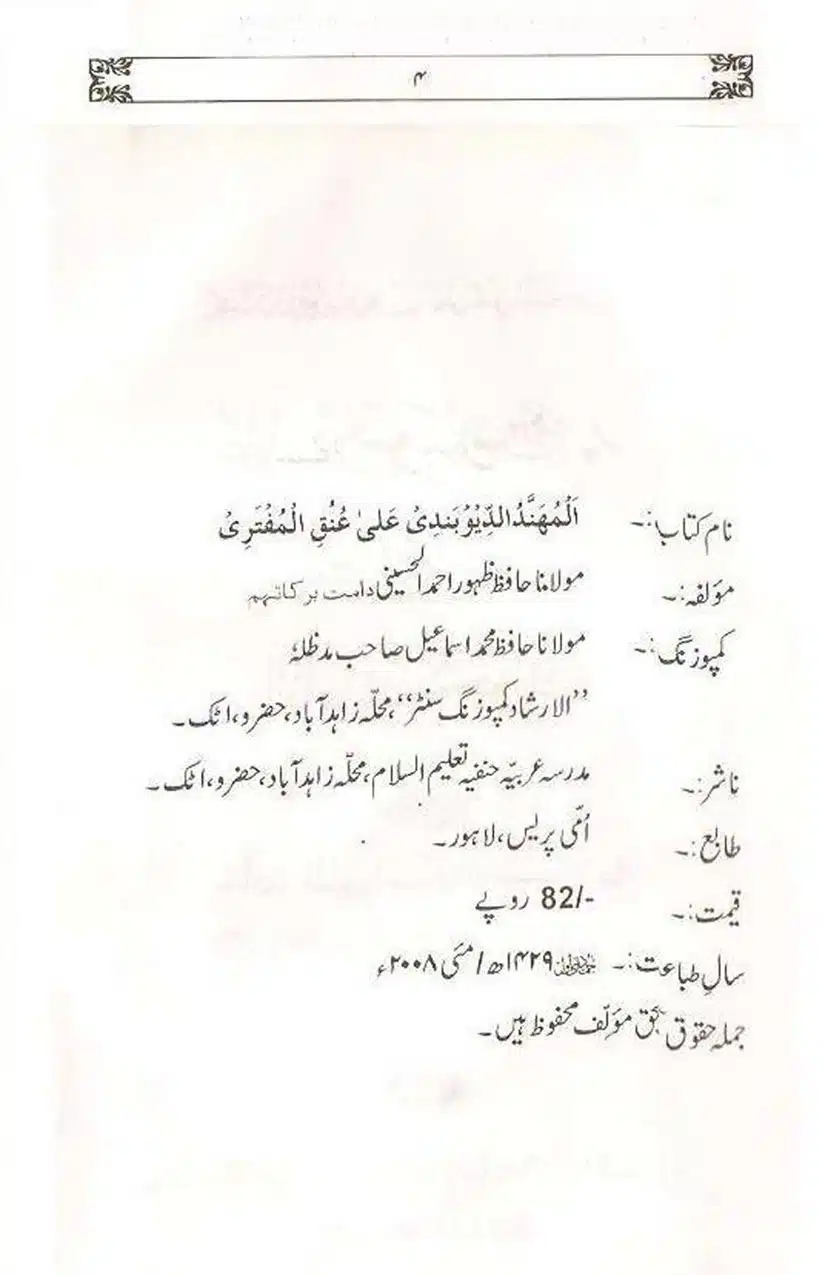 ۴
نام کتاب:۔ اَلْمُهَنَّدُ الدِّيُوْبَنْدِیْ عَلیٰ عُنُقِ الْمُفْتَرِیْ
مؤلفہ:۔ مولانا حافظ ظہور احمد الحسینی دامت برکاتہم
کمپوزنگ:۔ مولانا حافظ محمد اسماعیل صاحب مدظلہٗ
”الارشاد کمپوزنگ سنٹر“، محلّہ زاہد آباد، حضرو، اٹک۔
ناشر:۔ مدرسہ عربیّہ حنفیہ تعلیم السلام، محلّہ زاہد آباد، حضرو، اٹک۔
طابع:۔ اُمّی پریس، لاہور۔
قیمت:۔ 82/- روپے
سالِ طباعت:۔ ۱۴۲۹ھ / مئی ۲۰۰۸ء
جملہ حقوق بحق مؤلّف محفوظ ہیں۔